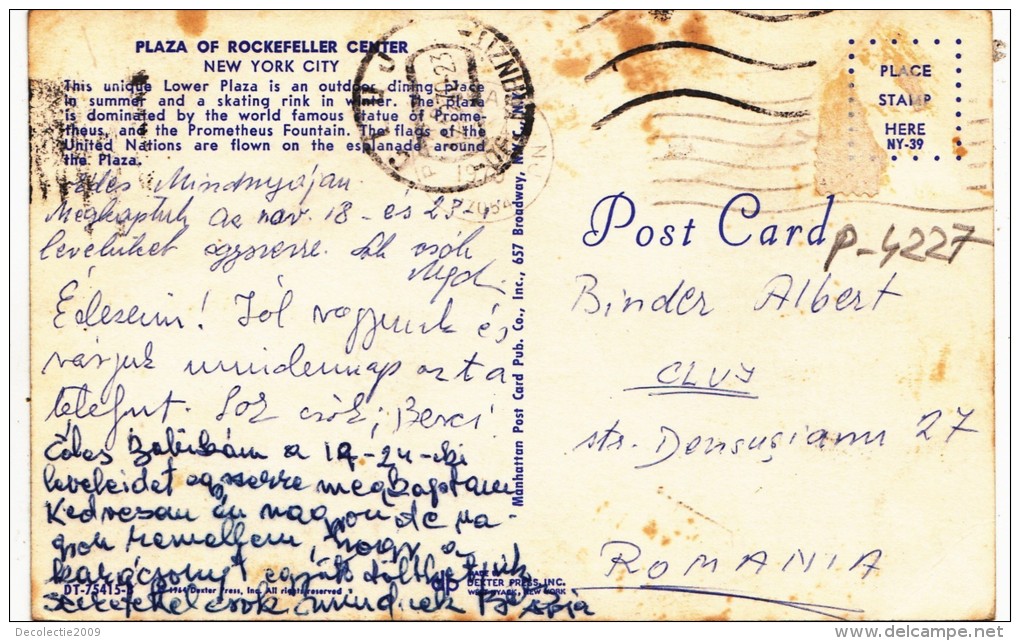 PLAZA OF ROCKEFELLER CENTER
NEW YORK CITY
This unique Lower Plaza is an outdoor dining place
in summer and a skating rink in winter. The plaza
is dominated by the world famous statue of Prome-
theus, and the Prometheus Fountain. The flags of the
United Nations are flown on the esplanade around
the Plaza.
Mindnyájan
Megkaptuk az nov. 18 - es 23 -i
leveleiket egyszerre. Sok csók
Édeseim! Jól vagyunk és
várjuk mindennap azt a
telefont. Sok csók, Berci!
Édes a 19-24-iki
leveleidet egyszerre megkaptam
én nagyon de na-
gyon remélem, hogy a
karácsonyt együtt
csók mindnek
DT-75415-B
© 1964 Dexter Press, Inc. All rights reserved
MADE BY
DEXTER PRESS, INC.
WEST NYACK, NEW YORK
Manhattan Post Card Pub. Co., Inc., 657 Broadway, N.Y.C. N.Y.
CLUJ
PLACE
STAMP
HERE
NY-39
Post Card
P-4227
Binder Albert
CLUJ
str. Densuşianu 27
ROMANIA
Decolectie2009
delcampe.net